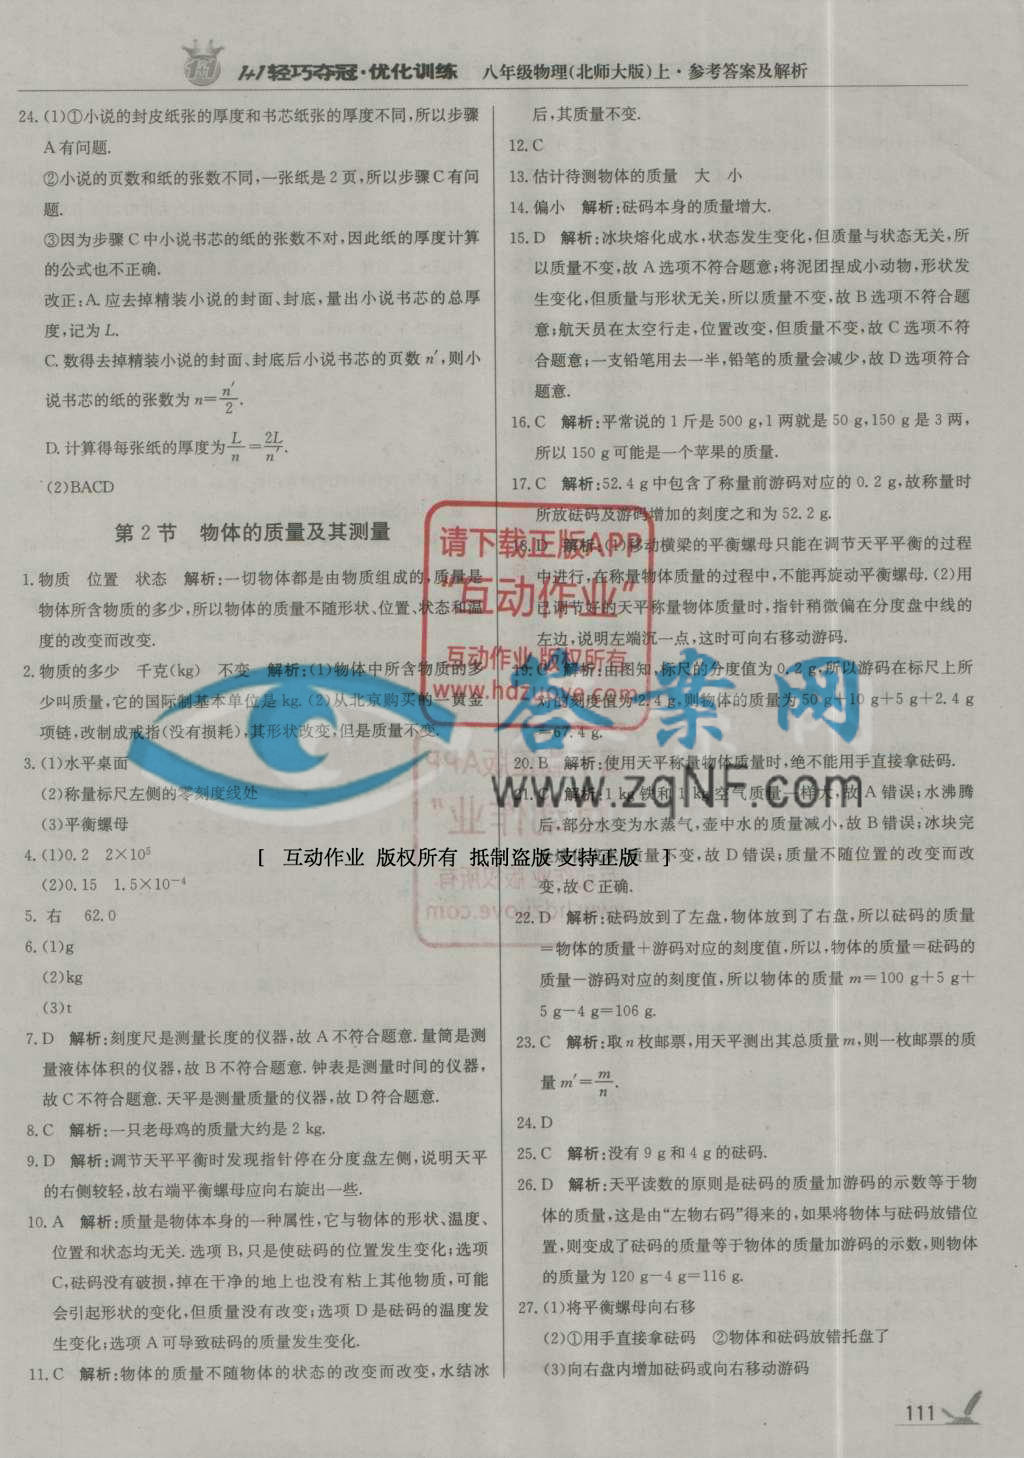 1+1轻巧夺冠·优化训练 八年级物理(北师大版)上·参考答案及解析
24.(1)①小说的封皮纸张的厚度和书芯纸张的厚度不同,所以步骤
A有问题.
②小说的页数和纸的张数不同,一张纸是2页,所以步骤C有问
题.
③因为步骤C中小说书芯的纸的张数不对,因此纸的厚度计算
的公式也不正确.
改正:A.应去掉精装小说的封面、封底,量出小说书芯的总厚
度,记为L.
C.数得去掉精装小说的封面、封底后小说书芯的页数n′,则小
说书芯的纸的张数为n=n′/2.
D.计算得每张纸的厚度为L/n=2L/n′.
(2)BACD
第2节 物体的质量及其测量
1.物质 位置 状态 解析:一切物体都是由物质组成的,质量是
物体所含物质的多少,所以物体的质量不随形状、位置、状态和温
度的改变而改变.
2.物质的多少 千克(kg) 不变 解析:(1)物体中所含物质的多
少叫质量,它的国际制基本单位是kg.(2)从北京购买的一黄金
项链,改制成戒指(没有损耗),其形状改变,但是质量不变.
3.(1)水平桌面
(2)称量标尺左侧的零刻度线处
(3)平衡螺母
4.(1)0.2 2×10⁵
(2)0.15 1.5×10⁻⁴
5.右 62.0
6.(1)g
(2)kg
(3)t
7.D 解析:刻度尺是测量长度的仪器,故A不符合题意.量筒是测
量液体体积的仪器,故B不符合题意.钟表是测量时间的仪器,
故C不符合题意.天平是测量质量的仪器,故D符合题意.
8.C 解析:一只老母鸡的质量大约是2 kg.
9.D 解析:调节天平平衡时发现指针停在分度盘左侧,说明天平
的右侧较轻,故右端平衡螺母应向右旋出一些.
10.A 解析:质量是物体本身的一种属性,它与物体的形状、温度、
位置和状态均无关.选项B,只是使砝码的位置发生变化;选项
C,砝码没有破损,掉在干净的地上也没有粘上其他物质,可能
会引起形状的变化,但质量没有改变;选项D是砝码的温度发
生变化;选项A可导致砝码的质量发生变化.
11.C 解析:物体的质量不随物体的状态的改变而改变,水结冰
后,其质量不变.
12.C
13.估计待测物体的质量 大 小
14.偏小 解析:砝码本身的质量增大.
15.D 解析:冰块熔化成水,状态发生变化,但质量与状态无关,所
以质量不变,故A选项不符合题意;将泥团捏成小动物,形状发
生变化,但质量与形状无关,所以质量不变,故B选项不符合题
意;航天员在太空行走,位置改变,但质量不变,故C选项不符
合题意;一支铅笔用去一半,铅笔的质量会减少,故D选项符合
题意.
16.C 解析:平常说的1斤是500 g,1两就是50 g,150 g是3两,
所以150 g可能是一个苹果的质量.
17.C 解析:52.4 g中包含了称量前游码对应的0.2 g,故称量时
所放砝码及游码增加的刻度之和为52.2 g.
18.D 解析:(1)移动横梁的平衡螺母只能在调节天平平衡的过程
中进行,在称量物体质量的过程中,不能再旋动平衡螺母.(2)用
已调节好的天平称量物体质量时,指针稍微偏在分度盘中线的
左边,说明左端沉一点,这时可向右移动游码.
19.C 解析:由图知,标尺的分度值为0.2 g,所以游码在标尺上所
对的刻度值为2.4 g,则物体的质量为50 g+10 g+5 g+2.4 g
=67.4 g.
20.B 解析:使用天平称量物体质量时,绝不能用手直接拿砝码.
21.C 解析:1 kg铁和1 kg空气质量一样大,故A错误;水沸腾
后,部分水变为水蒸气,壶中水的质量减小,故B错误;冰块完
质量不变,故D错误;质量不随位置的改变而改
变,故C正确.
22.D 解析:砝码放到了左盘,物体放到了右盘,所以砝码的质量
=物体的质量+游码对应的刻度值,所以,物体的质量=砝码的
质量-游码对应的刻度值,所以物体的质量m=100 g+5 g+
5 g-4 g=106 g.
23.C 解析:取n枚邮票,用天平测出其总质量m,则一枚邮票的质
量m′=m/n.
24.D
25.C 解析:没有9 g和4 g的砝码.
26.D 解析:天平读数的原则是砝码的质量加游码的示数等于物
体的质量,这是由“左物右码”得来的,如果将物体与砝码放错位
置,则变成了砝码的质量等于物体的质量加游码的示数,则物体
的质量为120 g-4 g=116 g.
27.(1)将平衡螺母向右移
(2)①用手直接拿砝码 ②物体和砝码放错托盘了
(3)向右盘内增加砝码或向右移动游码
111
请下载正版APP
“互动作业”
互动作业 版权所有
www.hdzuoye.com
答案网
www.zqNF.com
[ 互动作业 版权所有 抵制盗版 支持正版 ]